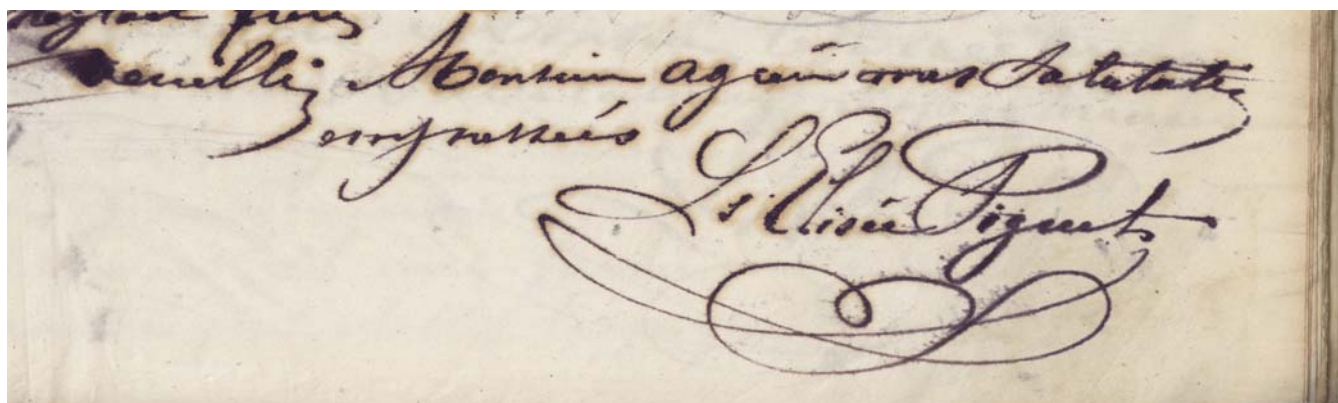 frères
Veuillez Monsieur agréer mes Salutations
empressées
Ls Elisée Piguet